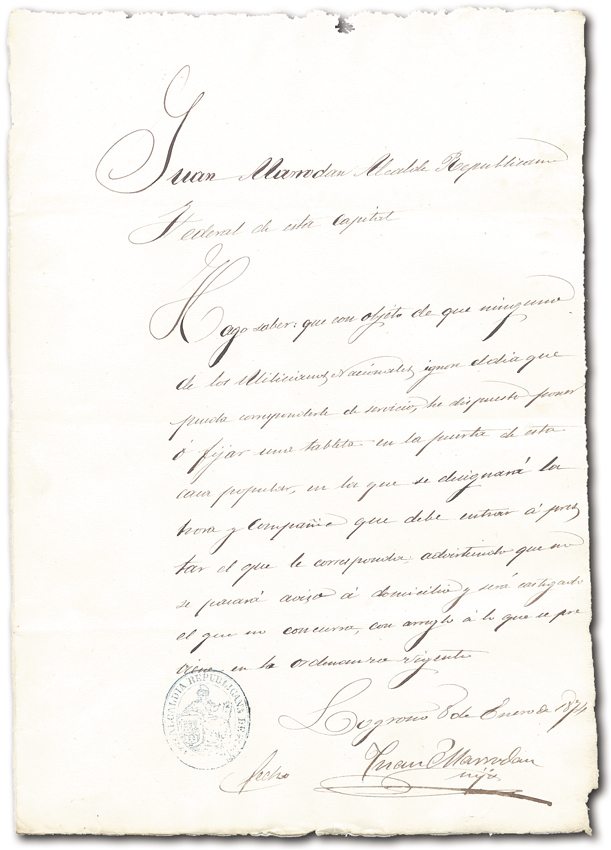 Juan Marrodan Alcalde Republicano
Federal de esta Capital
Hago saber: que con objeto de que ninguno
de los Milicianos Nacionales, ignore el dia que
pueda corresponderle de servicio, he dispuesto poner
ó fijar una tableta en la puerta de esta
casa popular, en la que se designará la
hora y Compañia que debe entrar á pres
tar el que le corresponda: advirtiendo que no
se pasará aviso á domicilio y será castigado
el que no concurra, con arreglo á lo que se pre
viene en la ordenanza vigente
Logroño 8 de Enero de 1874
Juan Marrodan
hijo
fecho
ALCALDIA REPUBLICANA DE